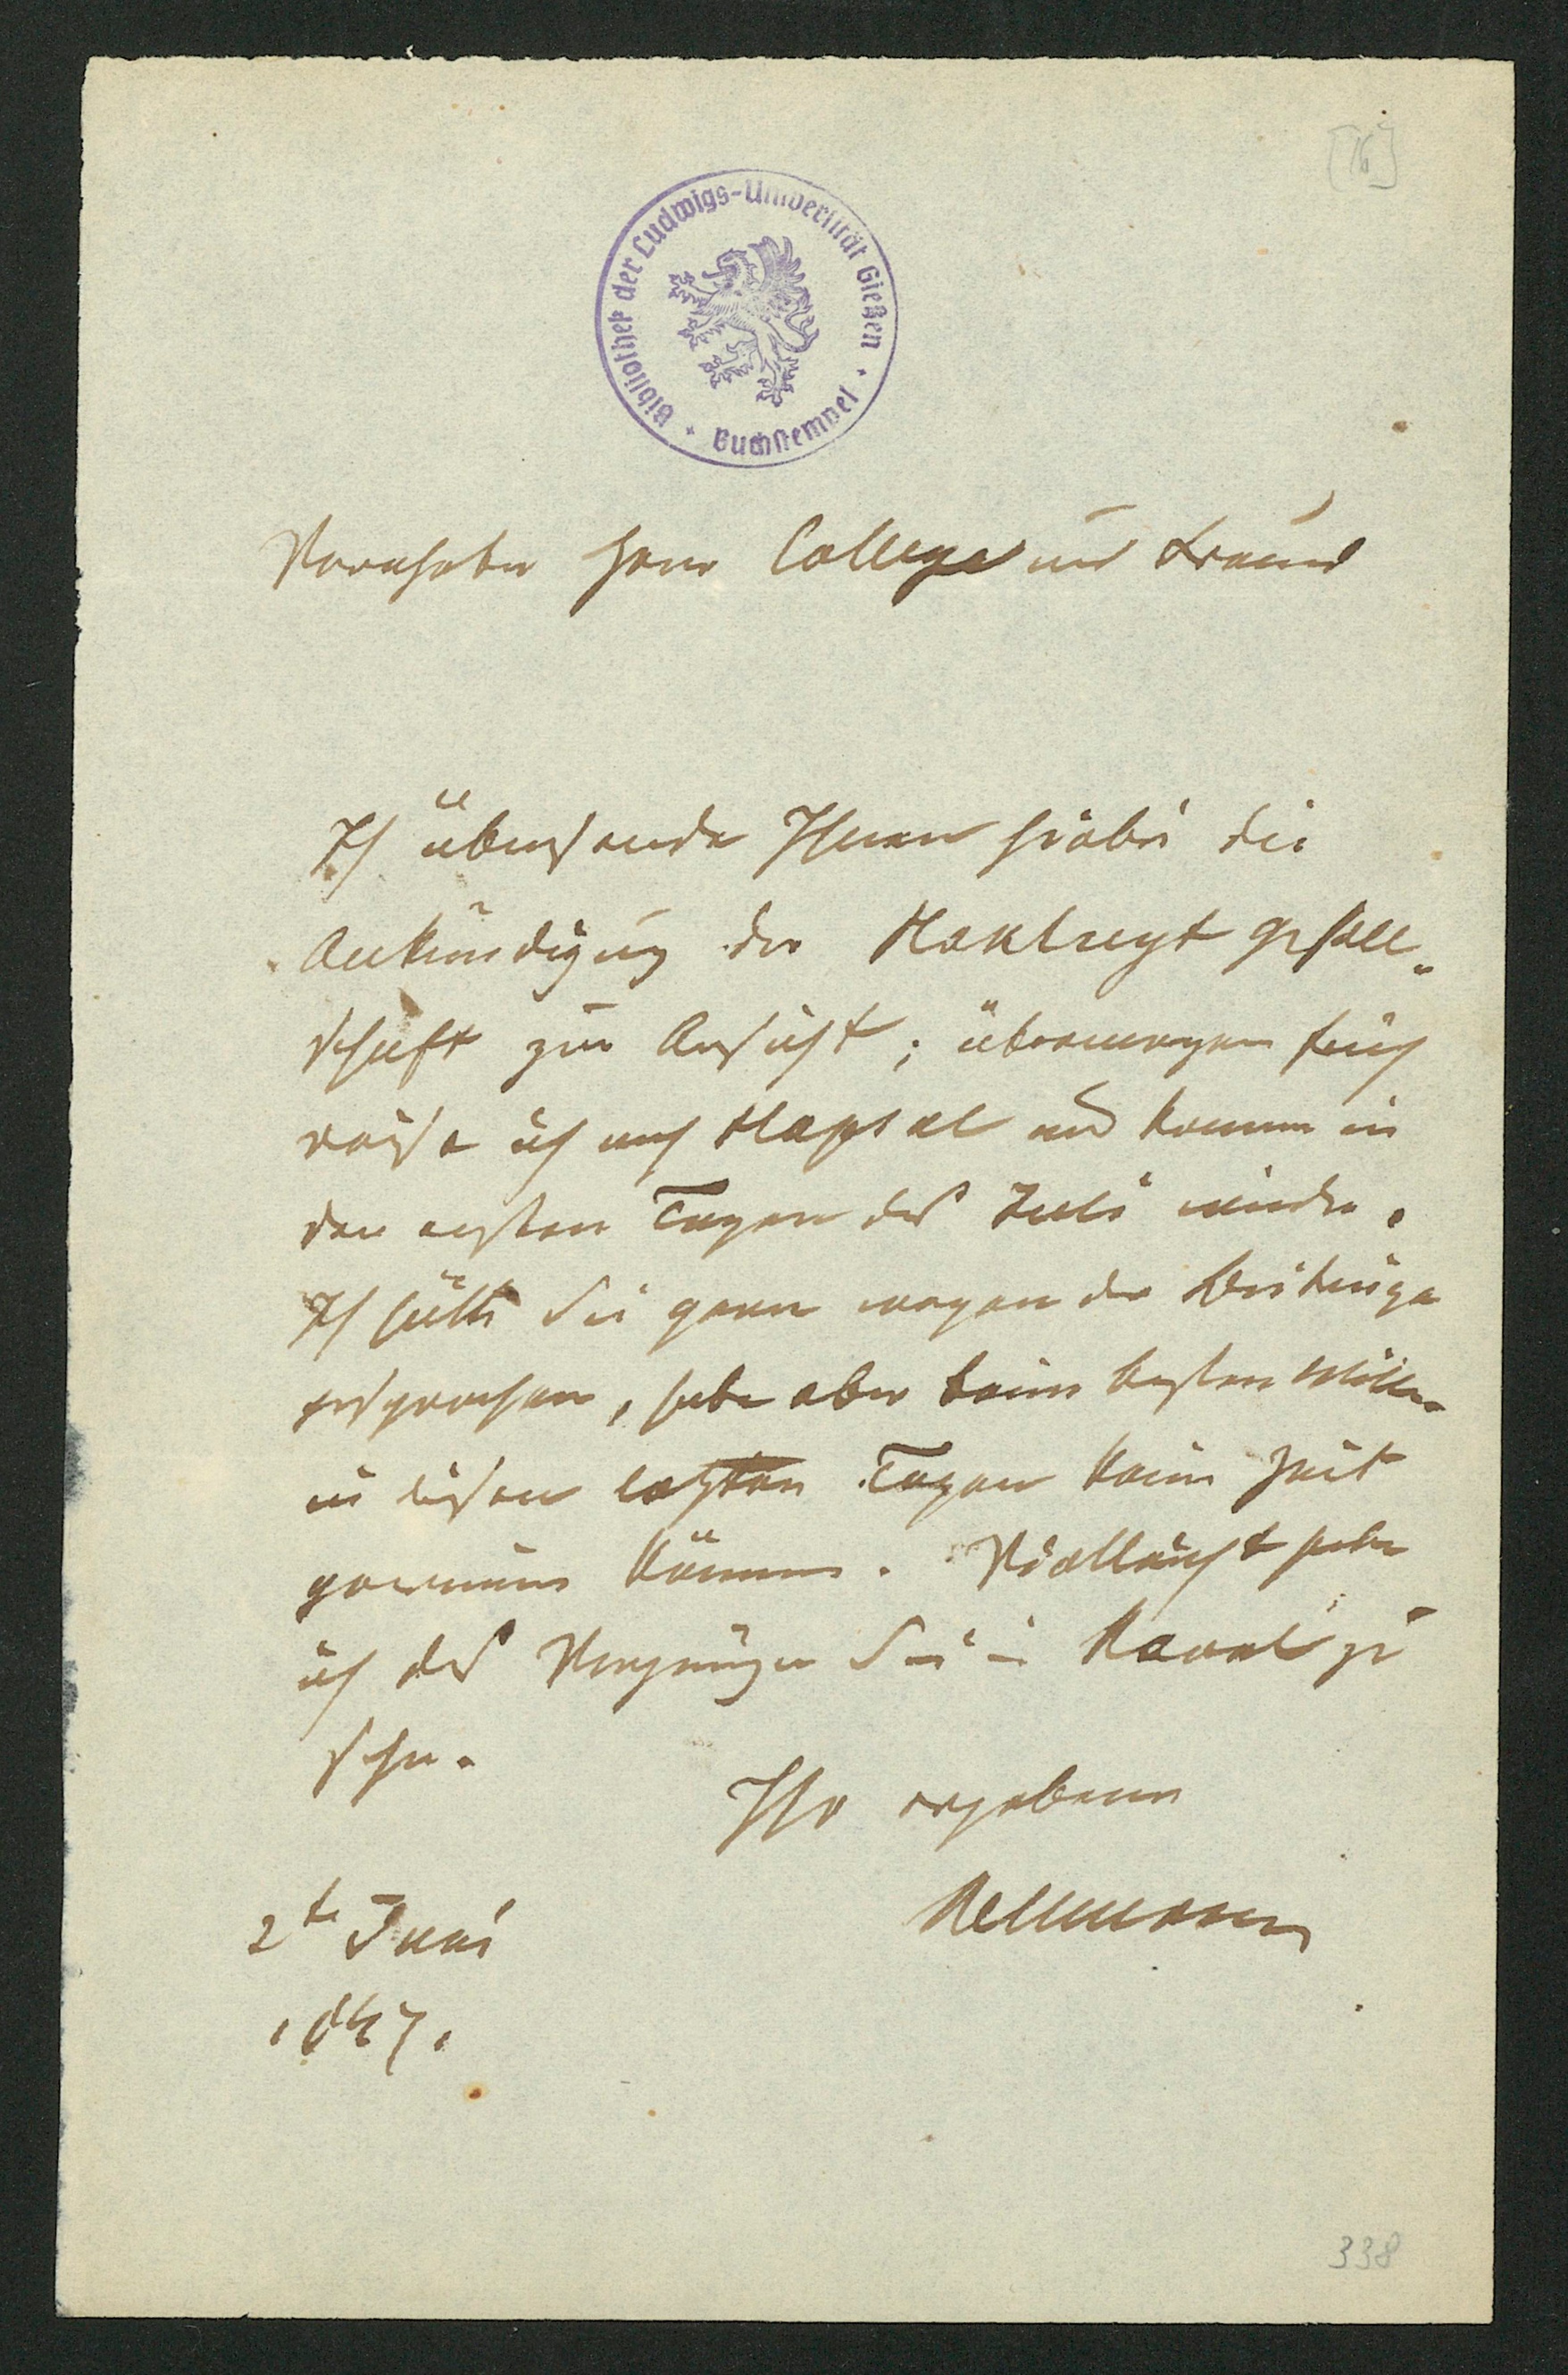 [16]
Bibliothek der Ludwigs-Universität Gießen · Buchstempel ·
Verehrter Herr College und Freund
Ich übersende Ihnen hiebei die
Ankündigung der Hakluyt Gesell-
schaft zur Ansicht; übermorgen früh
reise ich nach Hapsal und komme in
den ersten Tagen des Juli wieder.
Ich hätte Sie gern wegen der Beiträge
gesprochen, habe aber beim besten Willen
in diesen letzten Tagen keine Zeit
gewinnen können. Vielleicht habe
ich das Vergnügen Sie in Reval zu
sehn.
Ihr ergebener
2te Juni
1847.
338